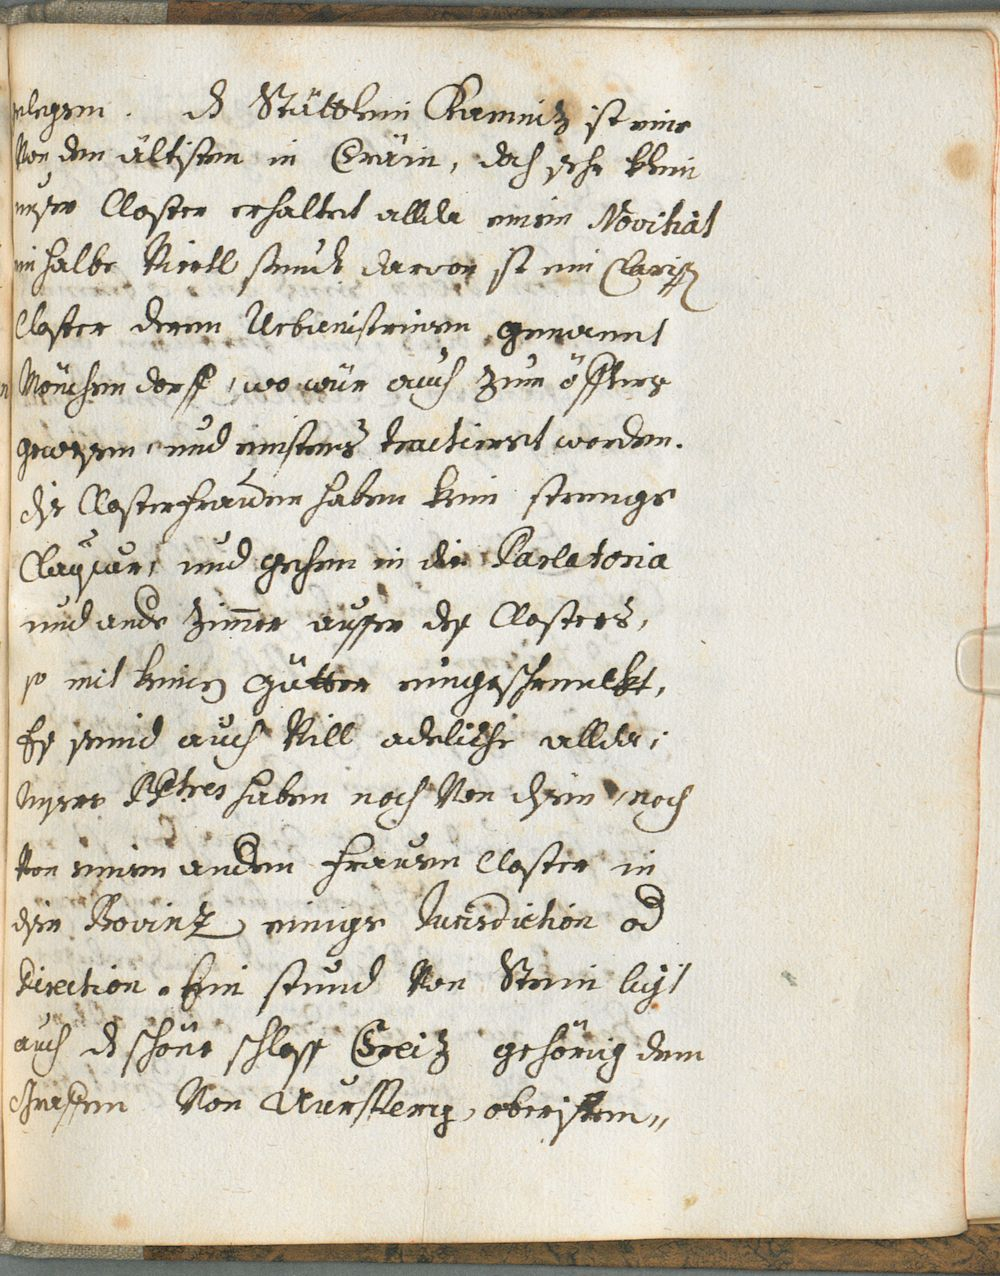 gelegen. d Stättlein Kamnitz ist eins
Von den ältisten in Crain, doch sehr klein
unser Closter erhaltet allda einen Novitiat
ein halbe Viertl stund darvon ist ein Clariss
Closter deren Urbanistrinen genannt
Münchendorff, wo wür auch zum öffters
gewesen und einsters tractieret worden.
dise Closterfrauen haben kein strenge
Clausur, und gehen in die Parlatoria
und ande Zimmer ausser des Closters,
so mit keinen Gütter eingeschrenckt,
Es seind auch Vill adeliche allda;
Unsere PPatres haben noch Von disem, noch
Von einem andern Frauen Closter in
diser Provintz einige Jurisdiction od
Direction. Ein stund Von Stein ligt
auch d schöne schloss Creitz gehörig dem
Graffen Von Aursperg, obersten,,